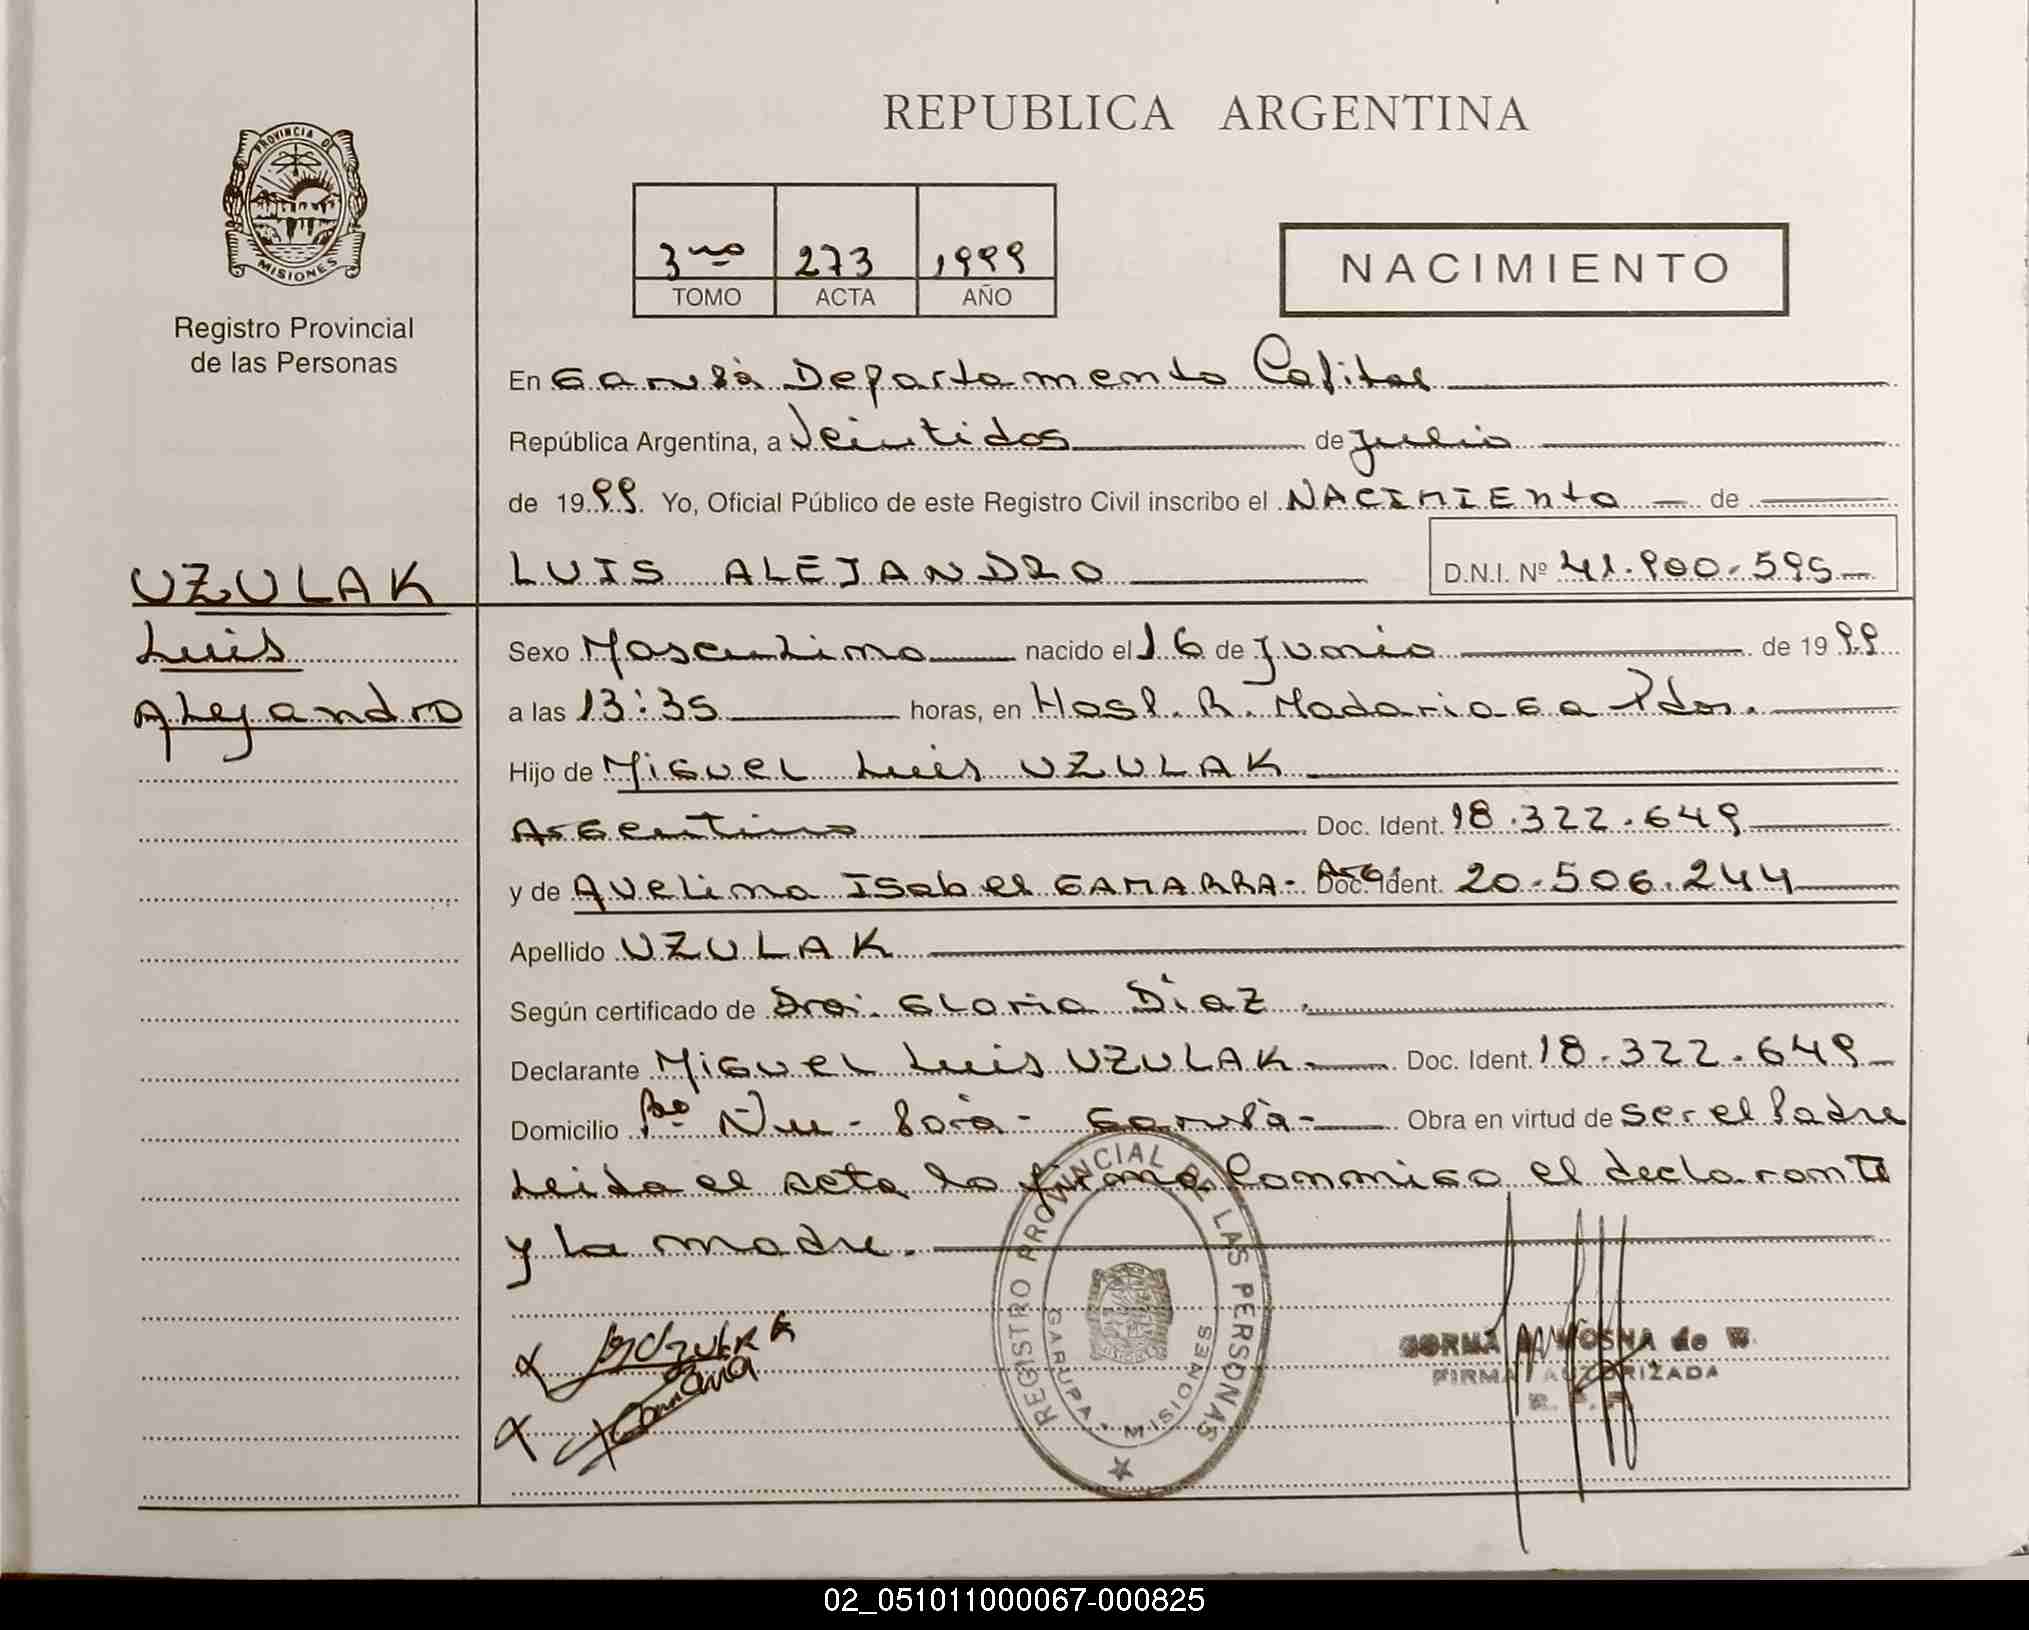 REPUBLICA ARGENTINA
PROVINCIA DE
MISIONES
Registro Provincial
de las Personas
3ro 273 1999
TOMO ACTA AÑO
NACIMIENTO
En Garupá Departamento Capital
República Argentina, a Veintidos de Julio
de 1999 Yo, Oficial Público de este Registro Civil inscribo el NACIMIENTO de
UZULAK
Luis
Alejandro
LUIS ALEJANDRO D.N.I. Nº 41.900.595
Sexo Masculino nacido el 16 de Junio de 1999
a las 13:35 horas, en Hosp. R. Madariaga Pdas.
Hijo de Miguel Luis UZULAK
Argentino Doc. Ident. 18.322.649
y de Avelina Isabel GAMARRA- Arg. Doc. Ident. 20.506.244
Apellido UZULAK
Según certificado de Dra. Gloria Diaz.
Declarante Miguel Luis UZULAK Doc. Ident. 18.322.649
Domicilio Bo Ñu-Porá- Garupá- Obra en virtud de ser el Padre
Leida el acta la firma Conmigo el declarante
y la madre.
REGISTRO PROVINCIAL DE LAS PERSONAS
GARUPA - MISIONES
de W.
FIRMA AUTORIZADA
R. P. P.
02_051011000067-000825